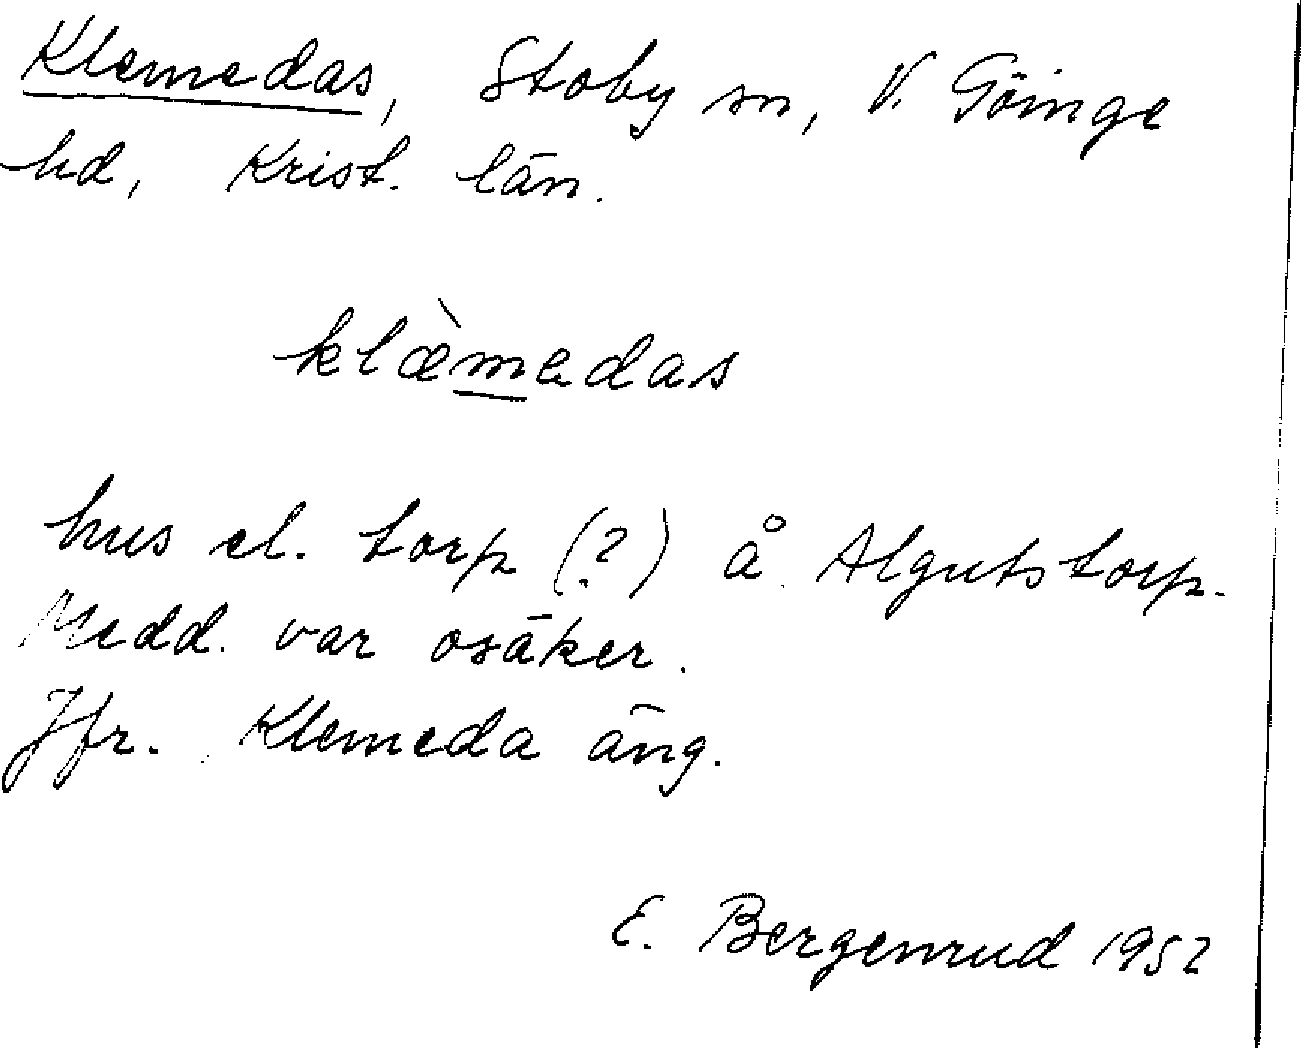 Klemedas, Stoby sn, V. Göinge
hd, Krist. län.
klæ̀medas
hus el. torp (?) å Algutstorp.
Medd. var osäker.
Jfr. Klemeda äng.
E. Bergenrud 1952